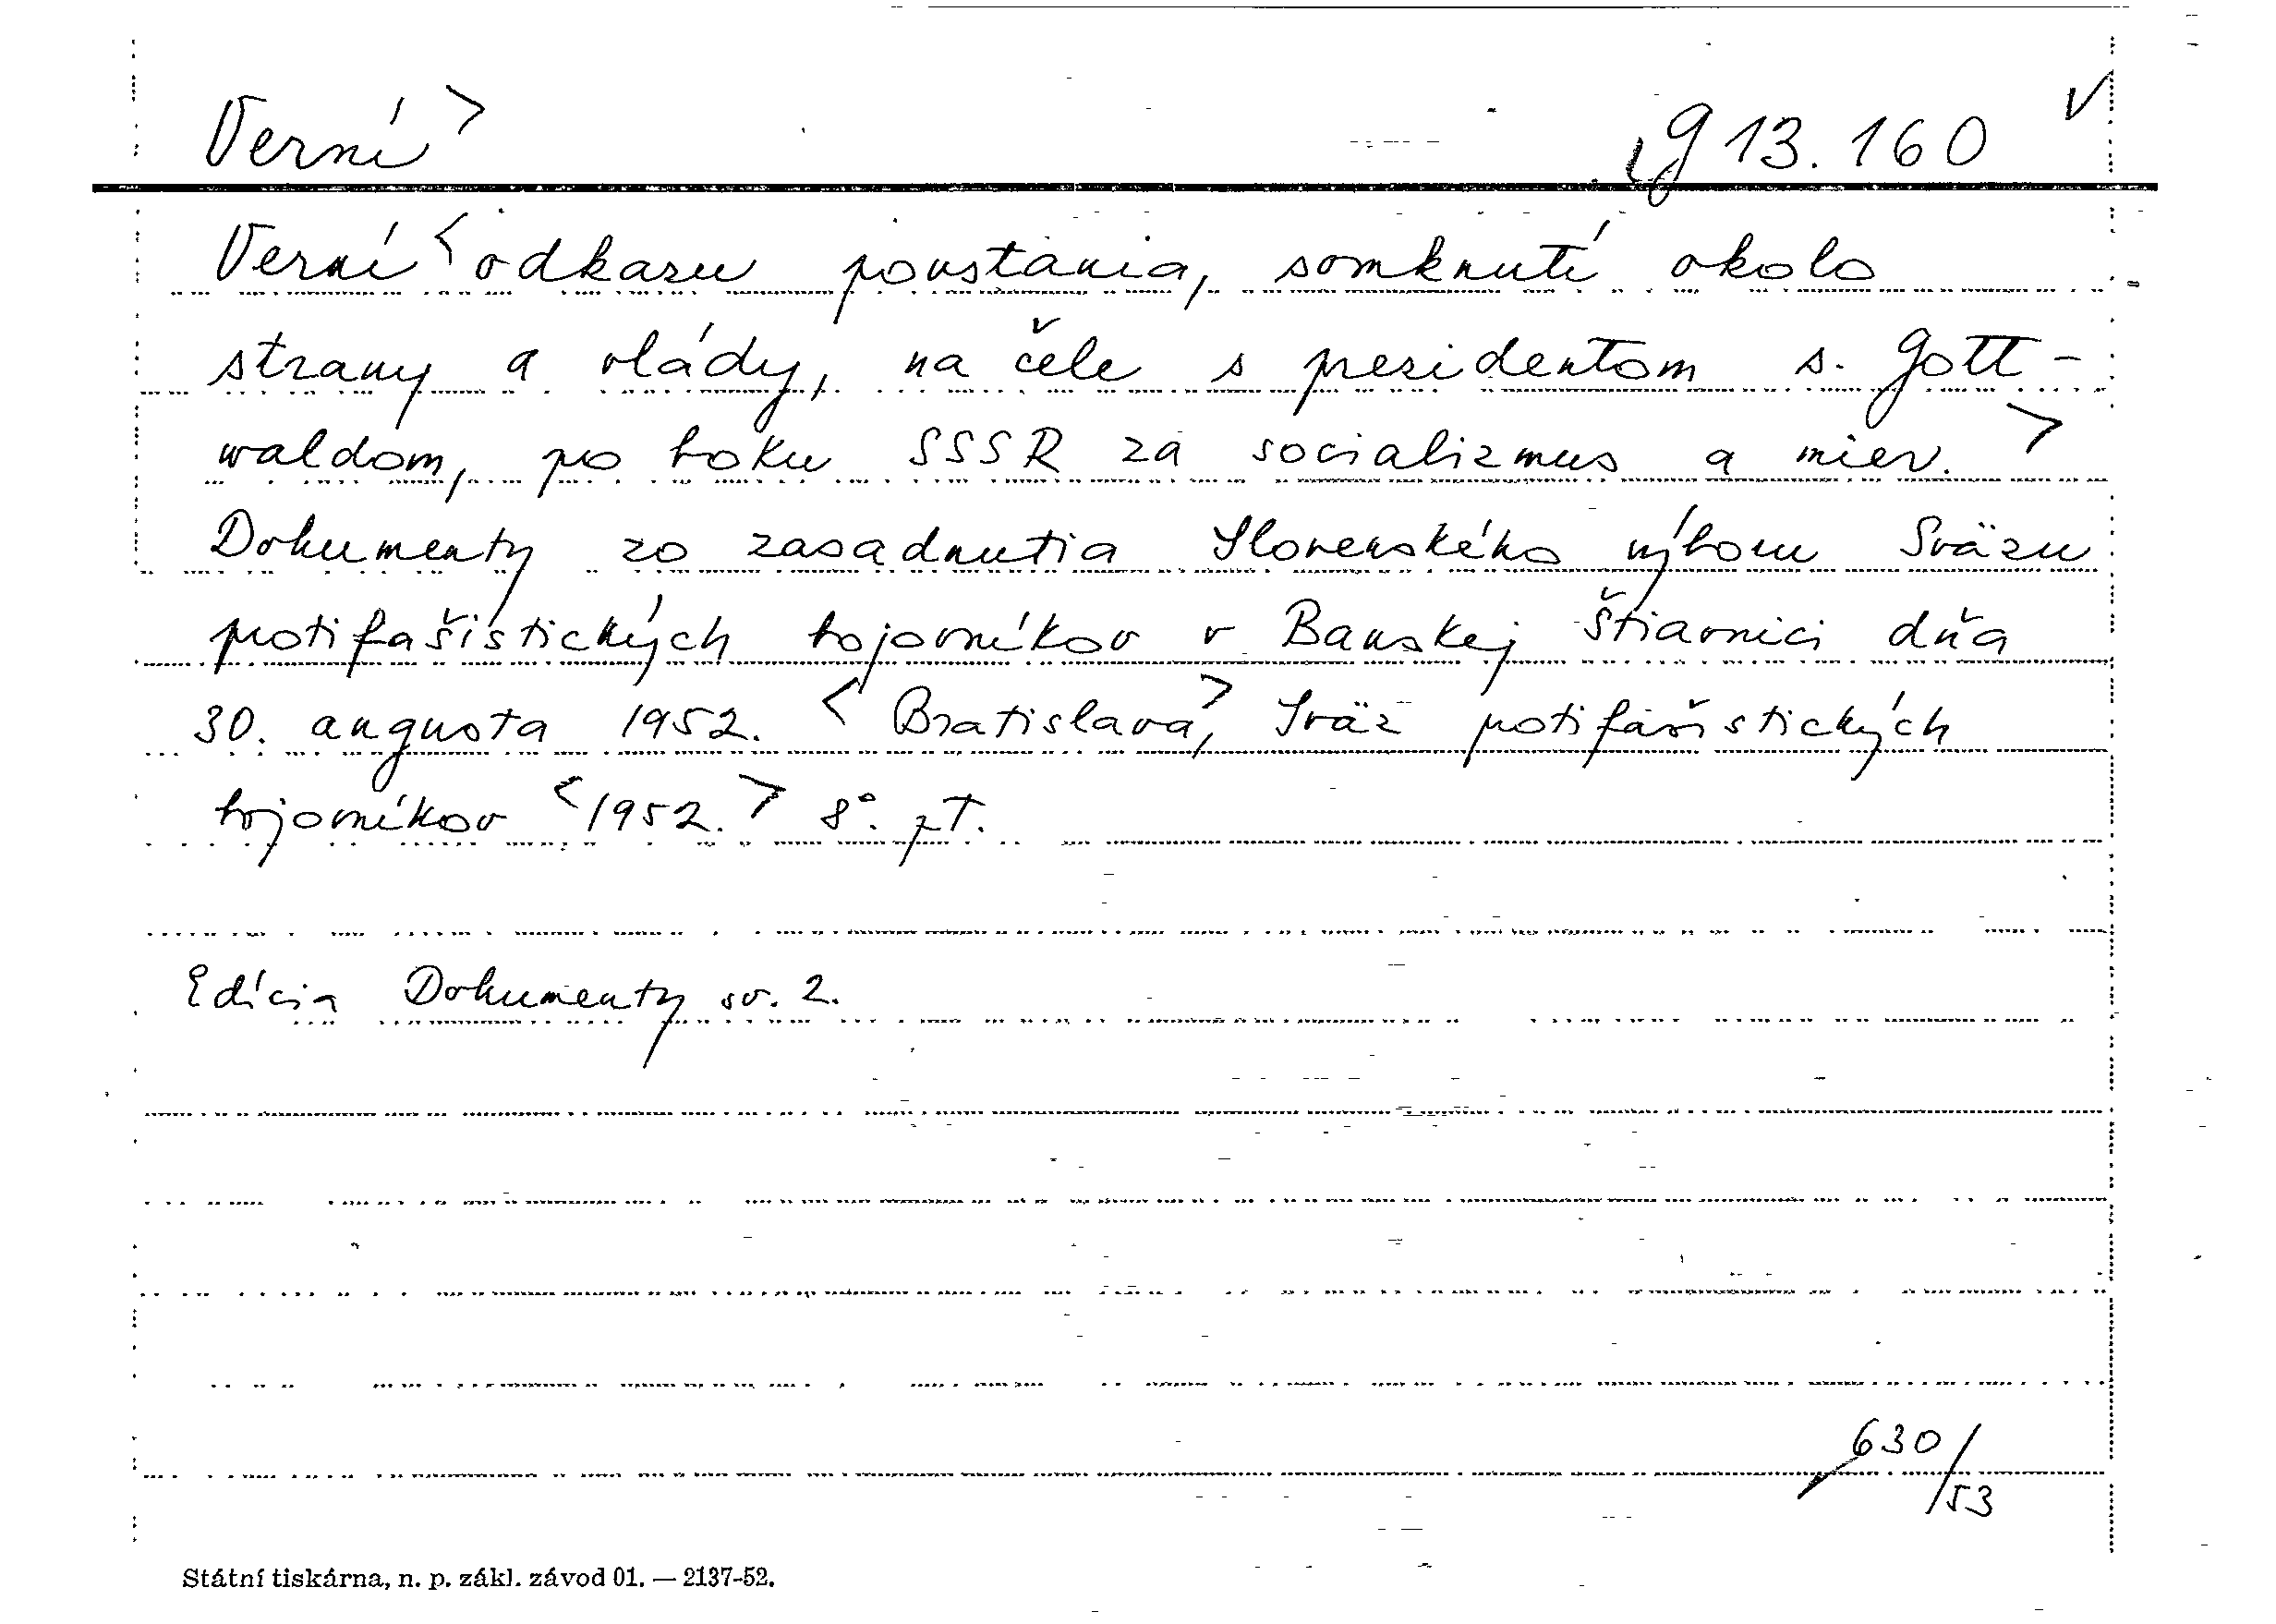 Verní > g 13.160 v
Verní < odkazu povstania, somknutí okolo
strany a vlády, na čele s prezidentom s. Gott-
waldom, po boku SSSR za socializmus a mier. >
Dokumenty zo zasadnutia Slovenského výboru Sväzu
protifašistických bojovníkov v Banskej Štiavnici dňa
30. augusta 1952. < Bratislava >, Sväz protifašistických
bojovníkov < 1952. > 8°. zT.
Edícia Dokumenty sv. 2.
630/
53
Státní tiskárna, n. p. zákl. závod 01. — 2137-52.